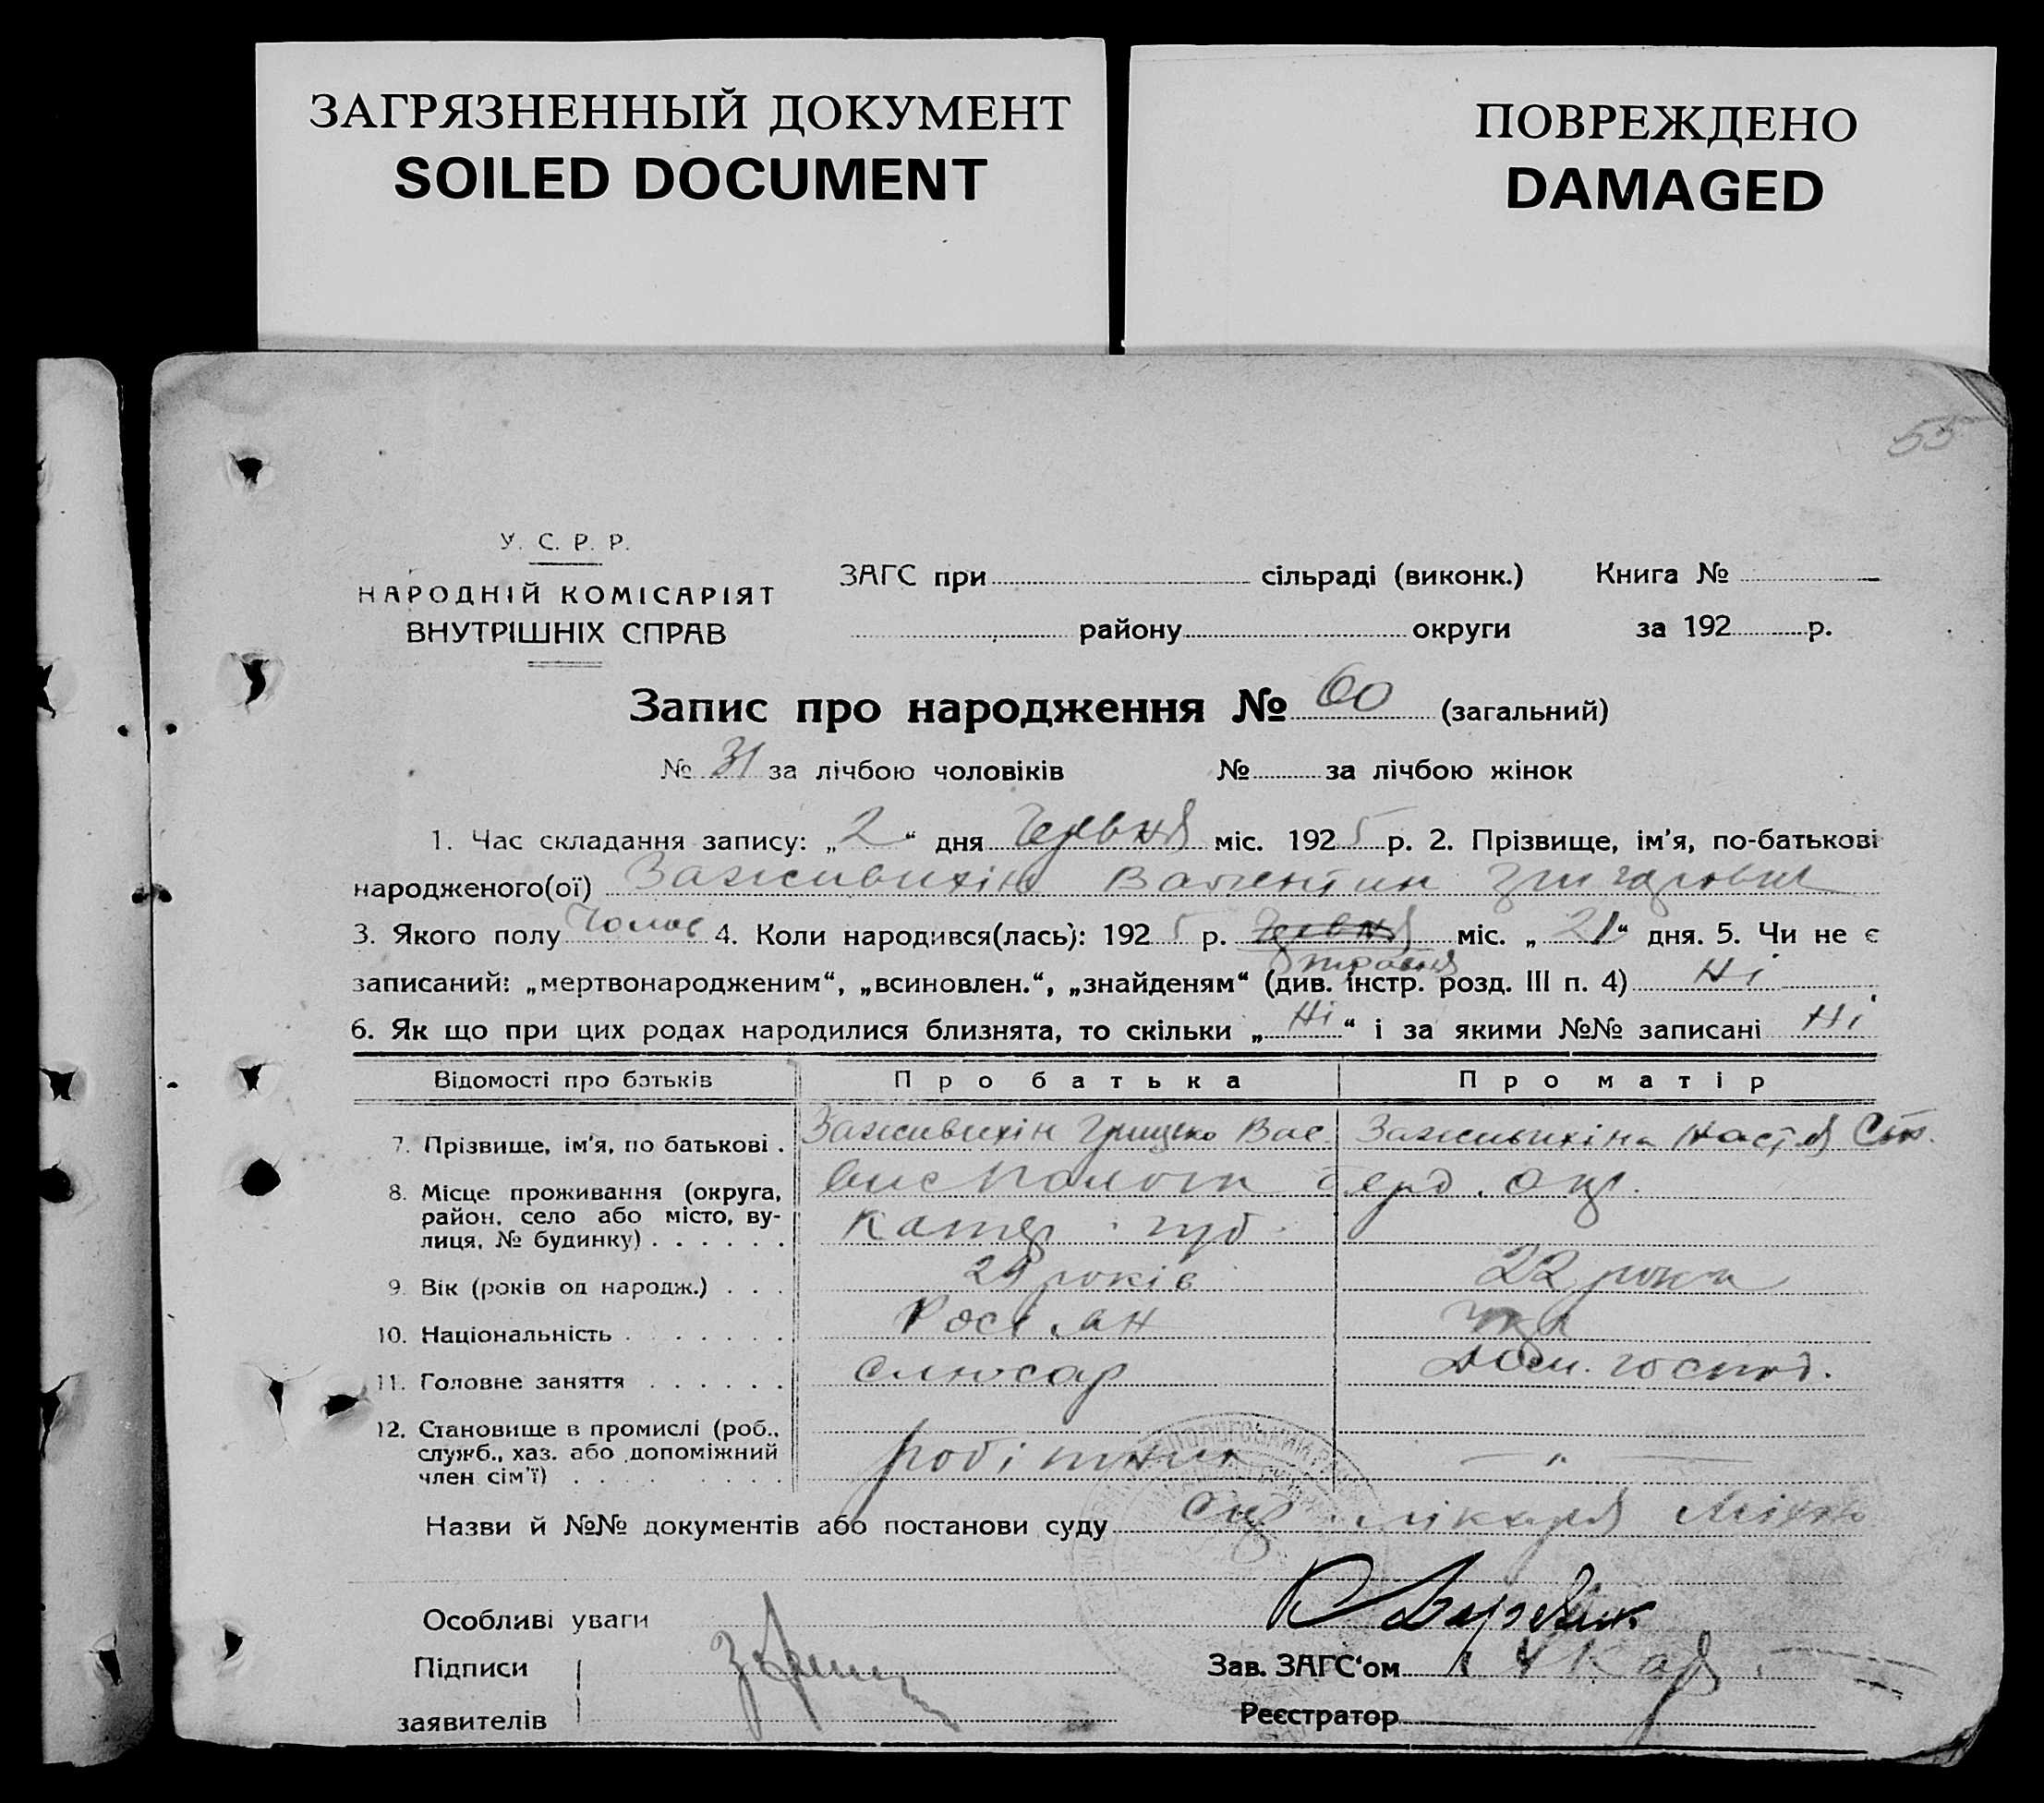 ЗАГРЯЗНЕННЫЙ ДОКУМЕНТ
SOILED DOCUMENT
ПОВРЕЖДЕНО
DAMAGED
55
У. С. Р. Р.
НАРОДНІЙ КОМІСАРІЯТ
ВНУТРІШНІХ СПРАВ
ЗАГС при сільраді (виконк.) Книга №
району округи за 192 р.
Запис про народження № 60 (загальний)
№ 31 за лічбою чоловіків № за лічбою жінок
1. Час складання запису: „2“ дня Червня міс. 1925 р. 2. Прізвище, ім'я, по-батькові
народженого(ої) Заживихін Валентин Григорович
3. Якого полу Чолов 4. Коли народився(лась): 1925 р. Червня міс. „21“ дня. 5. Чи не є
травня
записаний: „мертвонародженим“, „всиновлен.“, „знайденям“ (див. інстр. розд. III п. 4) Ні
6. Як що при цих родах народилися близнята, то скільки „Ні“ і за якими №№ записані Ні
Відомості про батьків Про батька Про матір
7. Прізвище, ім'я, по батькові . Заживихін Грицько Вас. Заживихіна Настя Ст.
8. Місце проживання (округа, район, село або місто, вулиця, № будинку) . . . . . . Берд. окр.
Катер. губ.
9. Вік (років од народж.) . . . 29 років 22 роки
10. Національність . . . . . . . Росіян Укр
11. Головне заняття . . . . . . слюсар Дом. господ.
12. Становище в промислі (роб., служб., хаз. або допоміжний член сім'ї) . . . . . . . . робітник — " —
Назви й №№ документів або постанови суду лікаря
Особливі уваги
Підписи Зав. ЗАГС'ом
заявителів Реєстратор